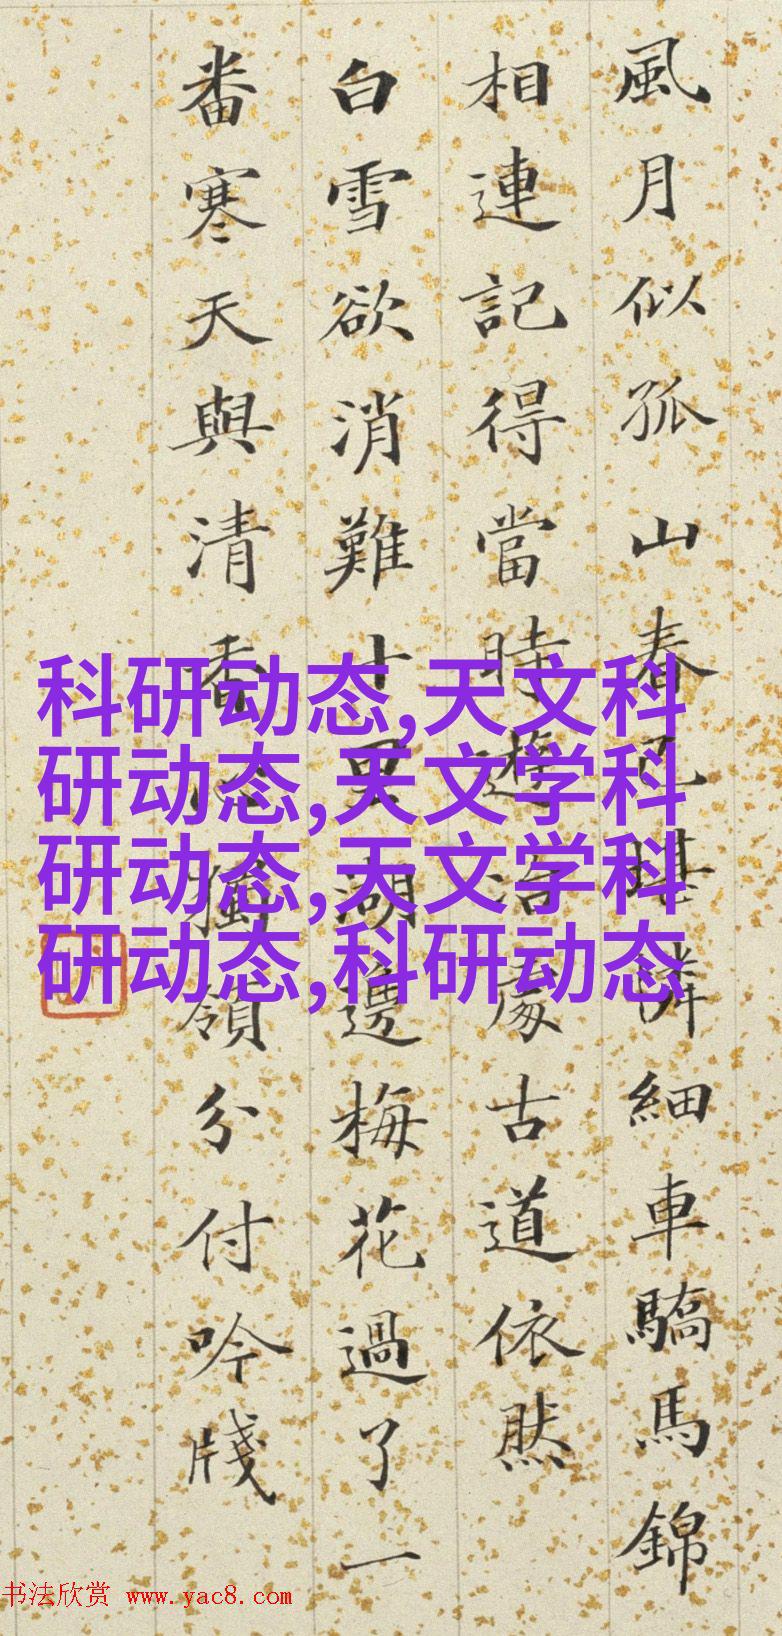 風月似孤山春已堪憐細車驕馬錦
相連記得當時遊冶處古道依然
白雪欲消難十里湖邊梅花過了一
番寒天與清香心獨領分付吟牋
科研动态,天文科
研动态,天文学科
研动态,天文学科
研动态,科研动态
书法欣赏 www.yac8.com